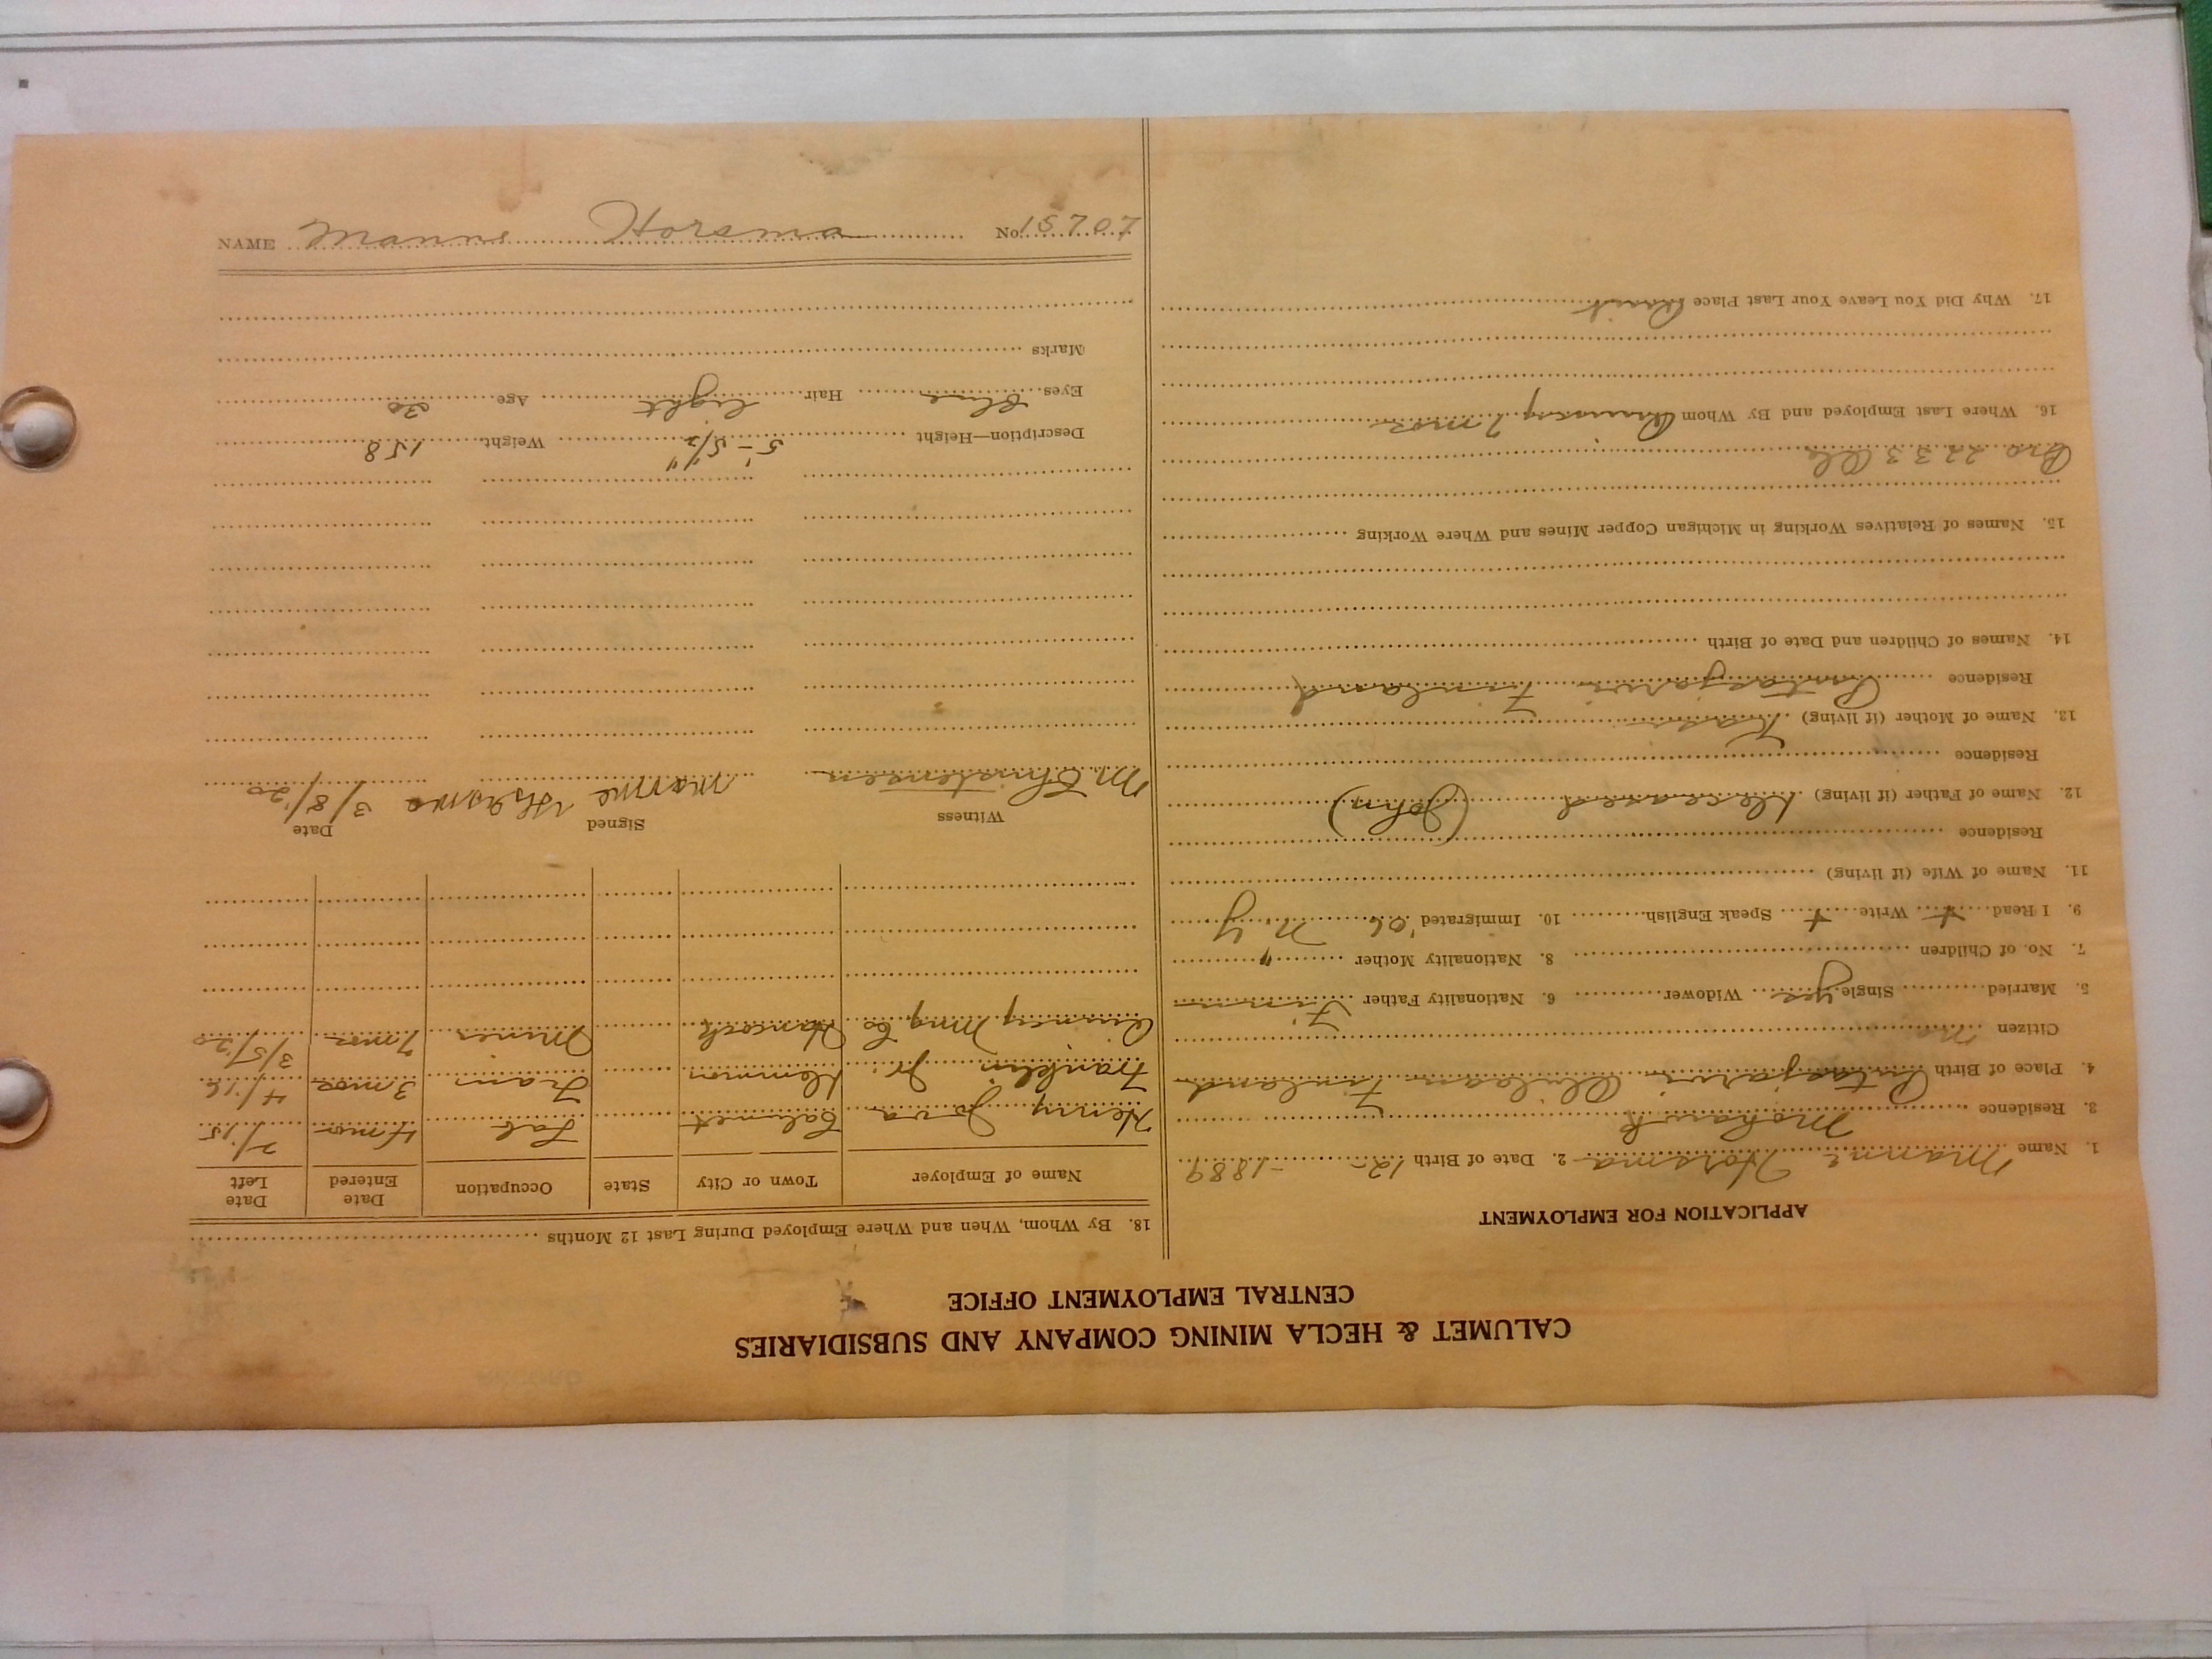 CALUMET & HECLA MINING COMPANY AND SUBSIDIARIES
CENTRAL EMPLOYMENT OFFICE
APPLICATION FOR EMPLOYMENT
1. Name Manne Horsma 2. Date of Birth 12 - 1889
3. Residence Mohawk
4. Place of Birth Finland
Citizen no
5. Married Single yes Widower 6. Nationality Father Finn
7. No. of Children 8. Nationality Mother "
9. I Read + Write + Speak English 10. Immigrated '06 N.Y
11. Name of Wife (if living)
Residence
12. Name of Father (if living) deceased (John)
Residence
13. Name of Mother (if living)
Residence Finland
14. Names of Children and Date of Birth
15. Names of Relatives Working in Michigan Copper Mines and Where Working
Bro 2233
16. Where Last Employed and By Whom Quincy 7 mos
17. Why Did You Leave Your Last Place Quit
18. By Whom, When and Where Employed During Last 12 Months
Name of Employer Town or City State Occupation Date Entered Date Left
Henry Calumet Lab 4 mos
Franklin Jr. Tram 3 mos 4/16
Quincy Mng Co Hancock Miner 7 mos 3/5/20
Witness Signed Date
M. Christensen Manne Horsma 3/8/20
Description—Height 5'-5 1/2" Weight 158
Eyes blue Hair light Age 30
Marks
NAME Manne Horsma No. 15707